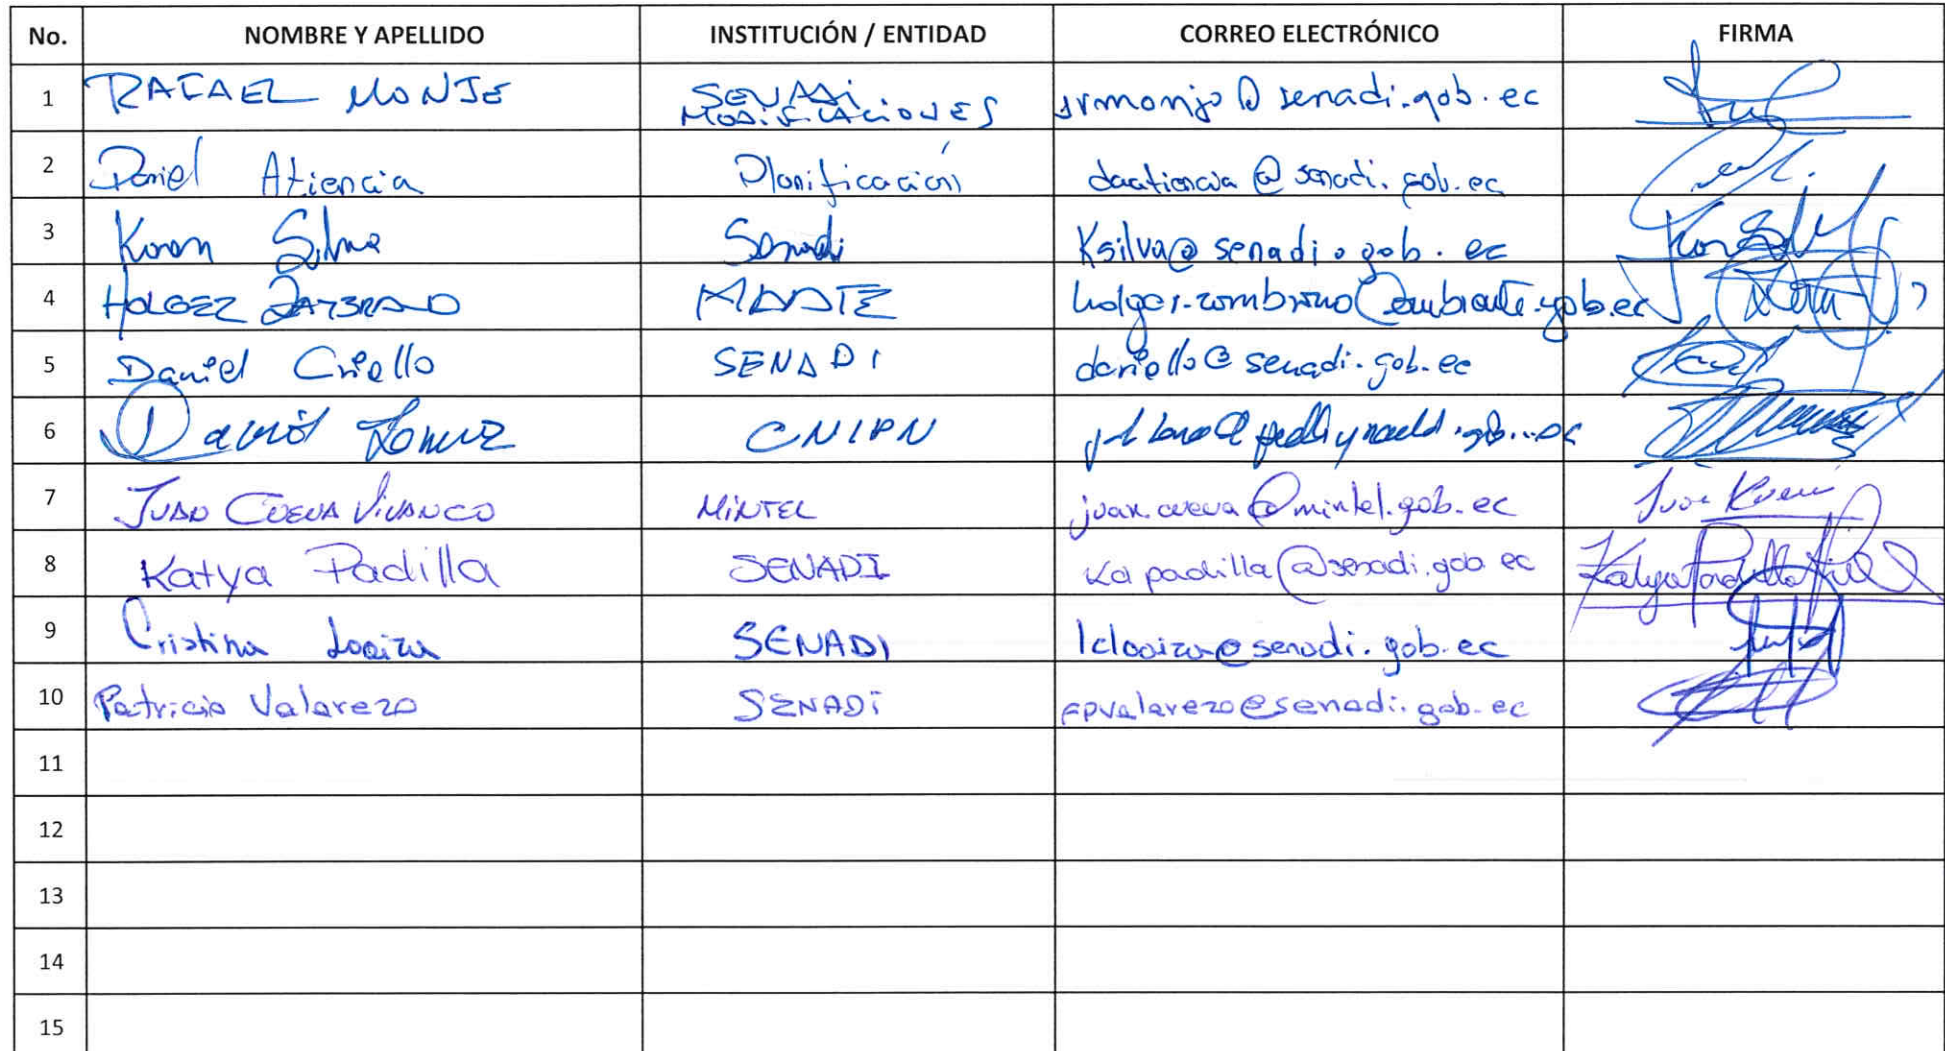 No. NOMBRE Y APELLIDO INSTITUCIÓN / ENTIDAD CORREO ELECTRÓNICO FIRMA
1 RAFAEL MONJE SENADI MODIFICACIONES srmonje@senadi.gob.ec
2 Daniel Atiencia Planificación daatiencia@senadi.gob.ec
3 Karen Silva Senadi Ksilva@senadi.gob.ec
4 HOLGER ZAMBRANO MAATE holger.zambrano@ambiente.gob.ec
5 Daniel Criollo SENADI dcriollo@senadi.gob.ec
6 David CNIPN
7 JUAN CUEVA VIVANCO MINTEL juan.cueva@mintel.gob.ec
8 Katya Padilla SENADI kapadilla@senadi.gob.ec Katya Padilla
9 Cristina Loaiza SENADI lcloaiza@senadi.gob.ec
10 Patricio Valarezo SENADI fpvalarezo@senadi.gob.ec
11
12
13
14
15